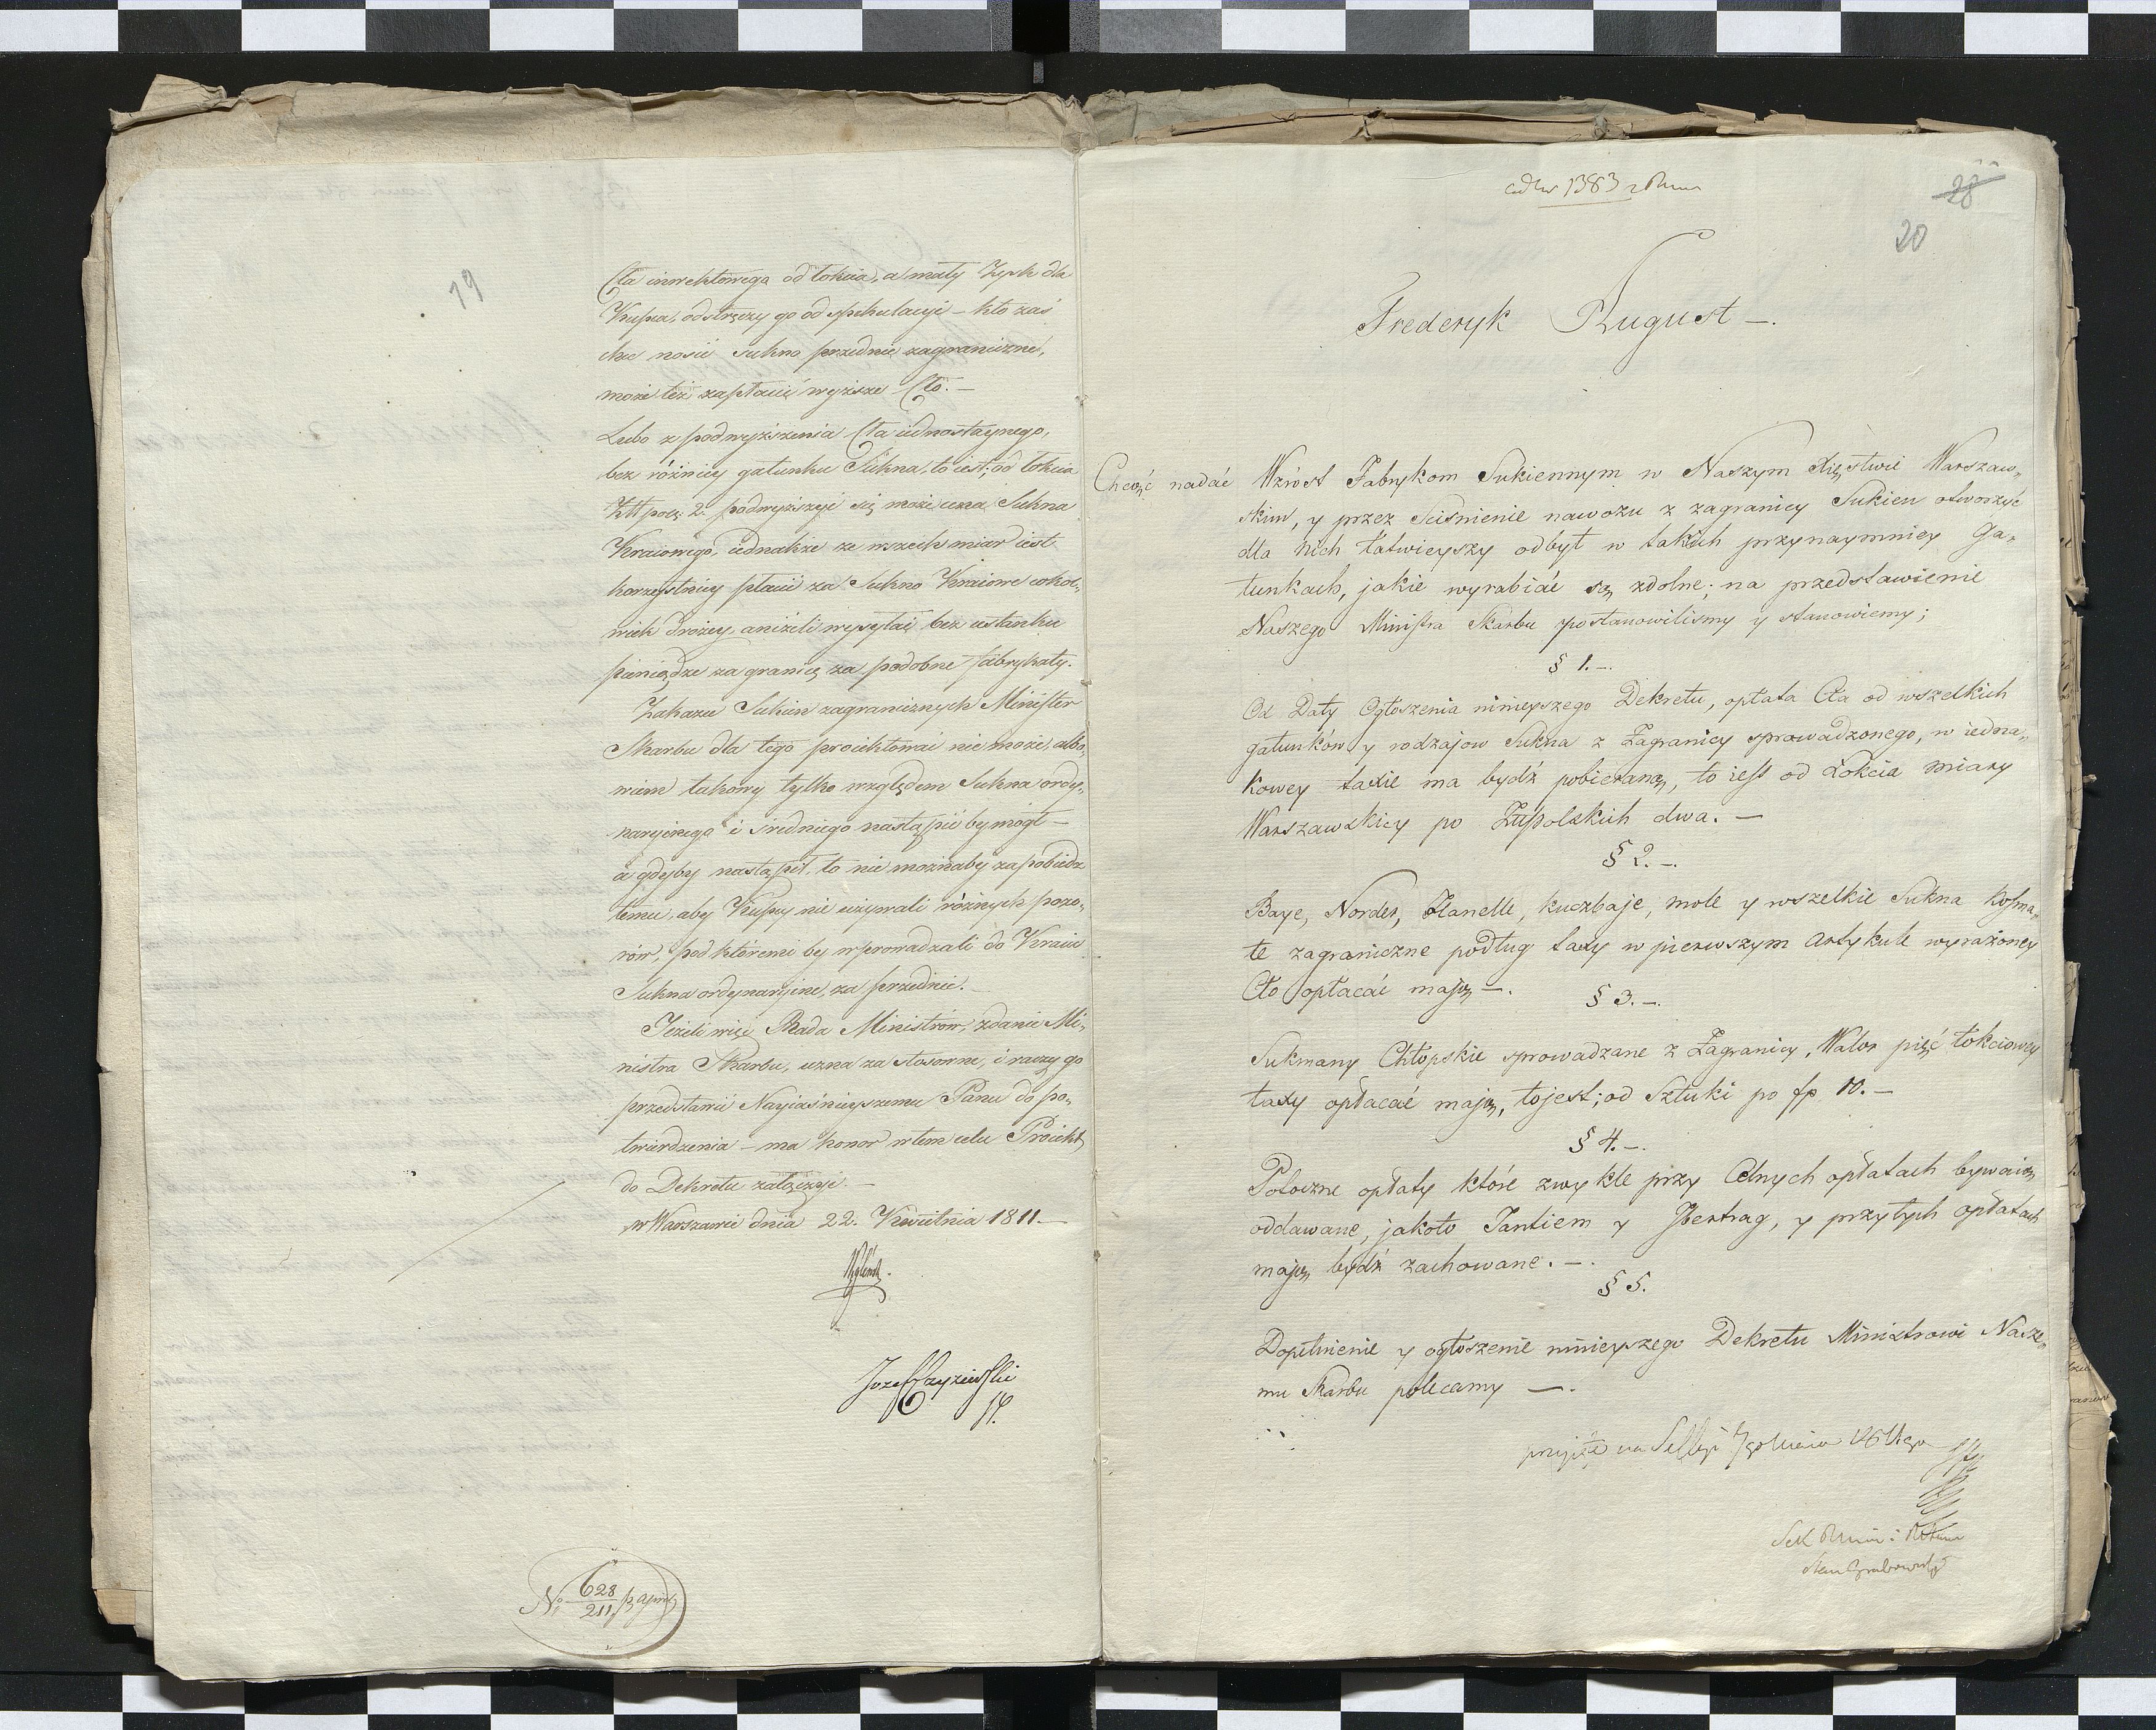 19
Cła inwektowego od łokcia, a mały Zysk dla
Kupca, odstręczy go od spekulacyi – kto zaś
chce nosić sukno przednie zagraniczne,
może też zapłacić wyższe Cło. –
Lubo z podwyższenia Cła iednostaynego,
bez różnicy gatunku Sukna, to iest; od łokcia
Złł pols: 2. podwyższyć się może cena Sukna
Kraiowego, iednakże ze wszech miar iest
korzystniey płacić za Sukno Kraiowe cokol„
wiek drożey, aniżeli wysyłać bez ustanku
pieniądze za granicę za podobne fabrykaty.
Zakazu Sukien zagranicznych Minister
Skarbu dla tego proiektować nie może, albo„
wiem takowy tylko względem Sukna ordy„
naryinego i średniego nastąpić by mógł –
a gdyby nastąpił, to nie możnaby zapobiedz
temu, aby Kupcy nie używali różnych pozo„
rów, pod któremi by wprowadzali do Kraiu
Sukna ordynaryine, za przednie. –
Jeżeli więc Rada Ministrów, zdanie Mi„
nistra Skarbu, uzna za stosowne, i raczy go
przedstawić Nayiaśnieyszemu Panu do po„
twierdzenia – ma honor w tem celu Proiekt
do Dekretu załączyć. –
w Warszawie dnia 22. Kwietnia 1811. –
Józef Czyżewski
N: 628
211
28
20
1383
Frederyk August –.
Chcąc nadać Wzrost Fabrykom Sukiennym w Naszym Xięstwie Warszaw„
skim, y przez Sciśnienie nawozu z zagranicy Sukien otworzyć
dla nich łatwieyszy odbyt w takich przynaymniey Ga„
tunkach, jakie wyrabiać są zdolne; na przedstawienie
Naszego Ministra Skarbu postanowilismy y stanowiemy;
§ 1. –.
Od Daty Ogłoszenia ninieyszego Dekretu, opłata Cła od wszelkich
gatunków y rodzajow Sukna z Zagranicy sprowadzonego, w iedna„
kowey taxie ma bydź pobieraną, to iest od Łokcia miary
Warszawskiey po Złłpolskich dwa. –
§ 2. –.
Baye, Norder, Flanelle, kuczbaje, mole y wszelkie Sukna Kosma„
te zagraniczne podług taxy w pierwszym Artykule wyrażoney
Cło opłacać mają –.
§ 3. –.
Sukmany Chłopskie sprowadzane z Zagranicy, Walor pięć łokciowey
taxy opłacać mają, tojest; od Sztuki po fp. 10. –
§ 4. –.
Potoczne opłaty które zwykle przy Celnych opłatach bywaią
oddawane, jakoto Tantiem y Ibertrag, y przy tych opłatach
mają bydź zachowane. –.
§ 5.
Dopełnienie y ogłoszenie ninieyszego Dekretu Ministrowi Nasze„
mu Skarbu polecamy –.